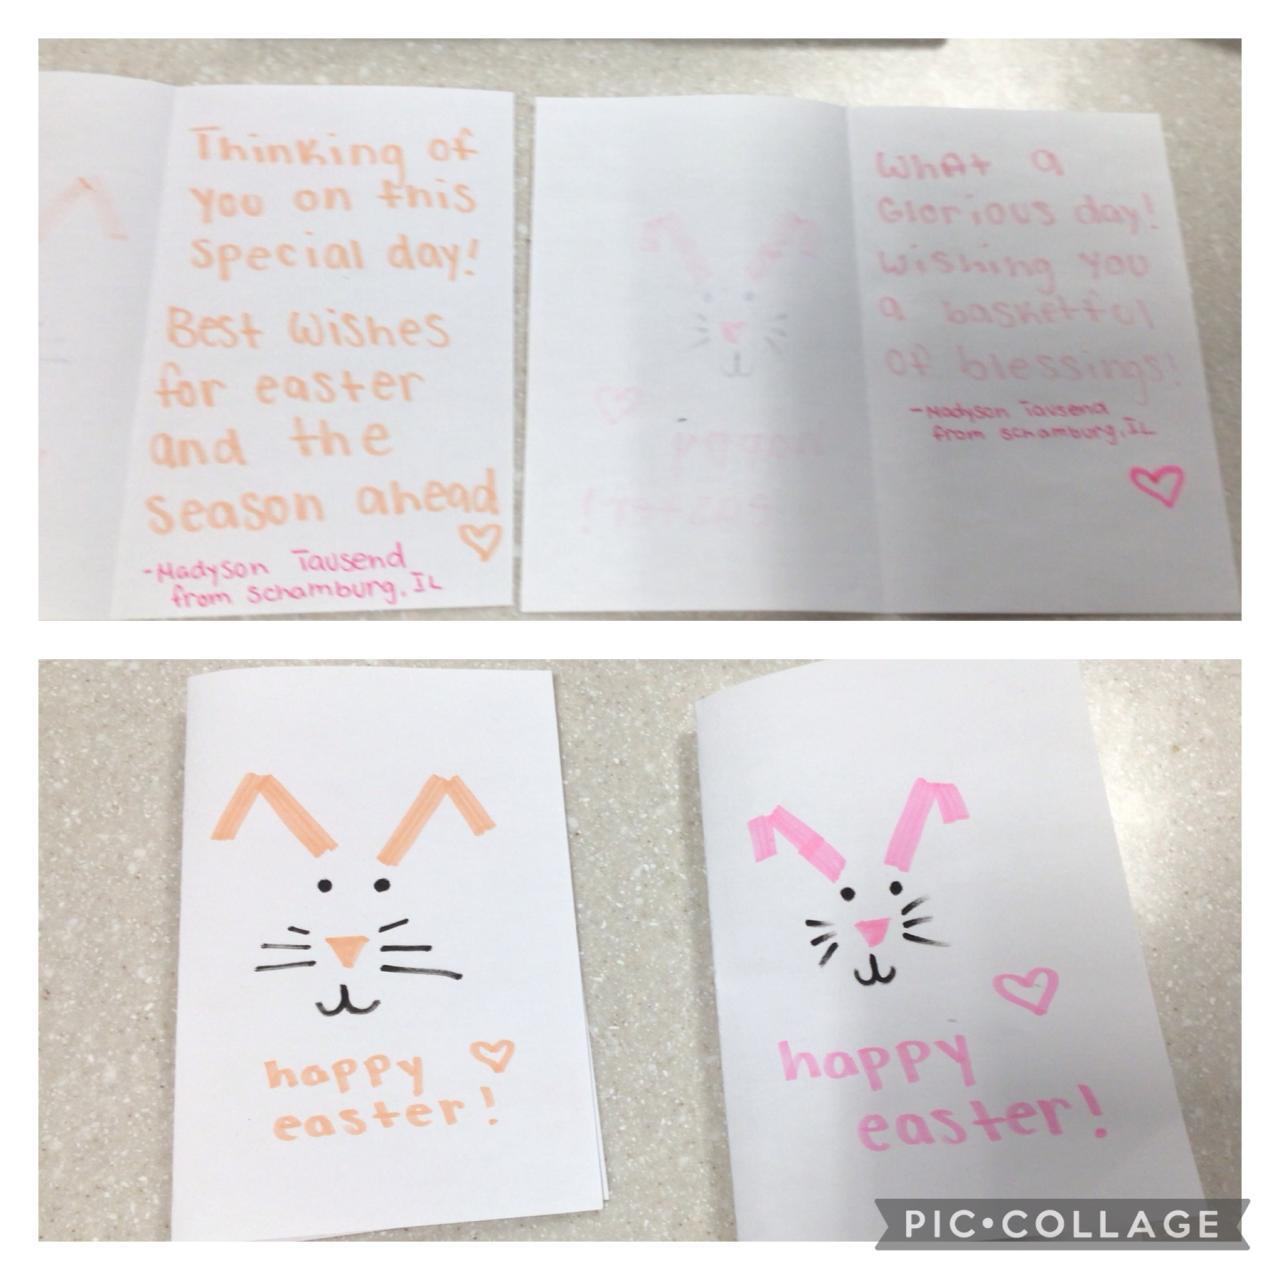 Thinking of
you on this
special day!
Best wishes
for easter
and the
season ahead
-Madyson Tausend
from Schamburg, IL
What a
Glorious day!
Wishing you
a basketful
of blessings!
-Madyson Tausend
from Schamburg, IL
happy
easter!
happy
easter!
happy
easter!
PIC•COLLAGE